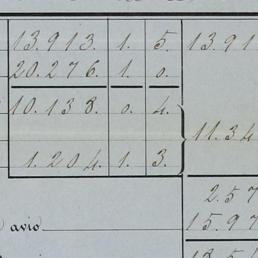 13.913. 1. 5. 13.91
20.276. 1. 0.
10.138. 0. 4.
11.34
1.204. 1. 3.
2.57
avio 15.97